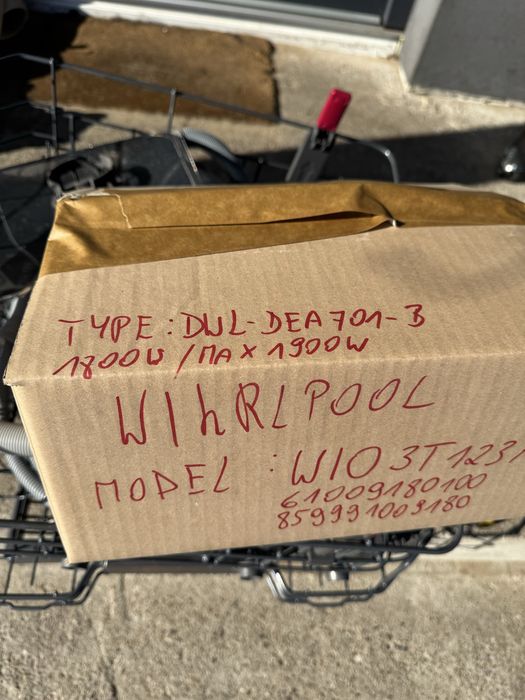 TYPE: DWL-DEA701-B
1800W / MAX 1900W
WIhRLPOOL
MODEL : WIO 3T123
61009180100
859991009180